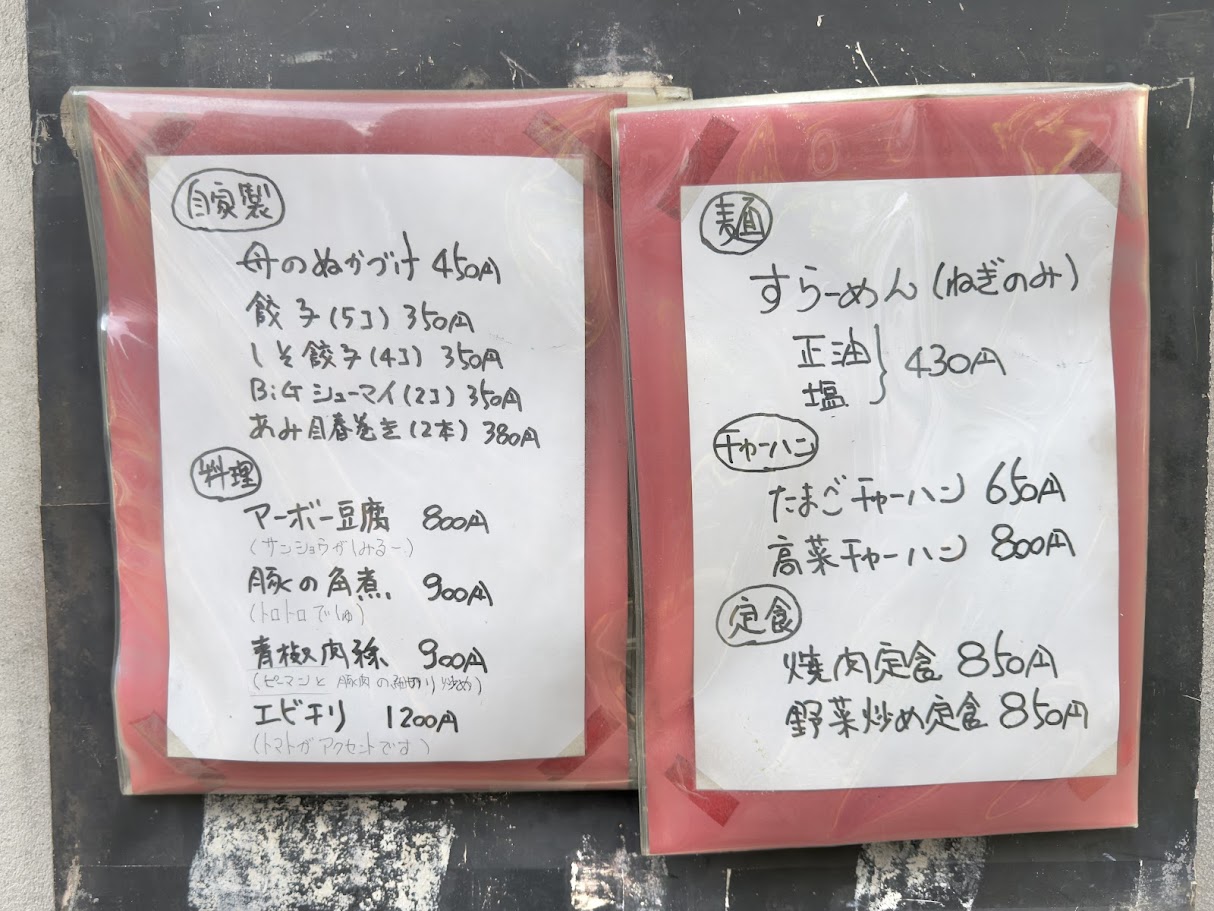 自家製
母のぬかづけ 450円
餃子(5コ) 350円
しそ餃子(4コ) 350円
BiGシューマイ(2コ) 350円
あみ目春巻き(2本) 380円
料理
マーボー豆腐 800円
(サンショウがしみるー)
豚の角煮 900円
(トロトロでしゅ)
青椒肉絲 900円
(ピーマンと豚肉の細切り炒め)
エビチリ 1200円
(トマトがアクセントです)
麺
すらーめん(ねぎのみ)
正油
塩
430円
チャーハン
たまごチャーハン 650円
高菜チャーハン 800円
定食
焼肉定食 850円
野菜炒め定食 850円